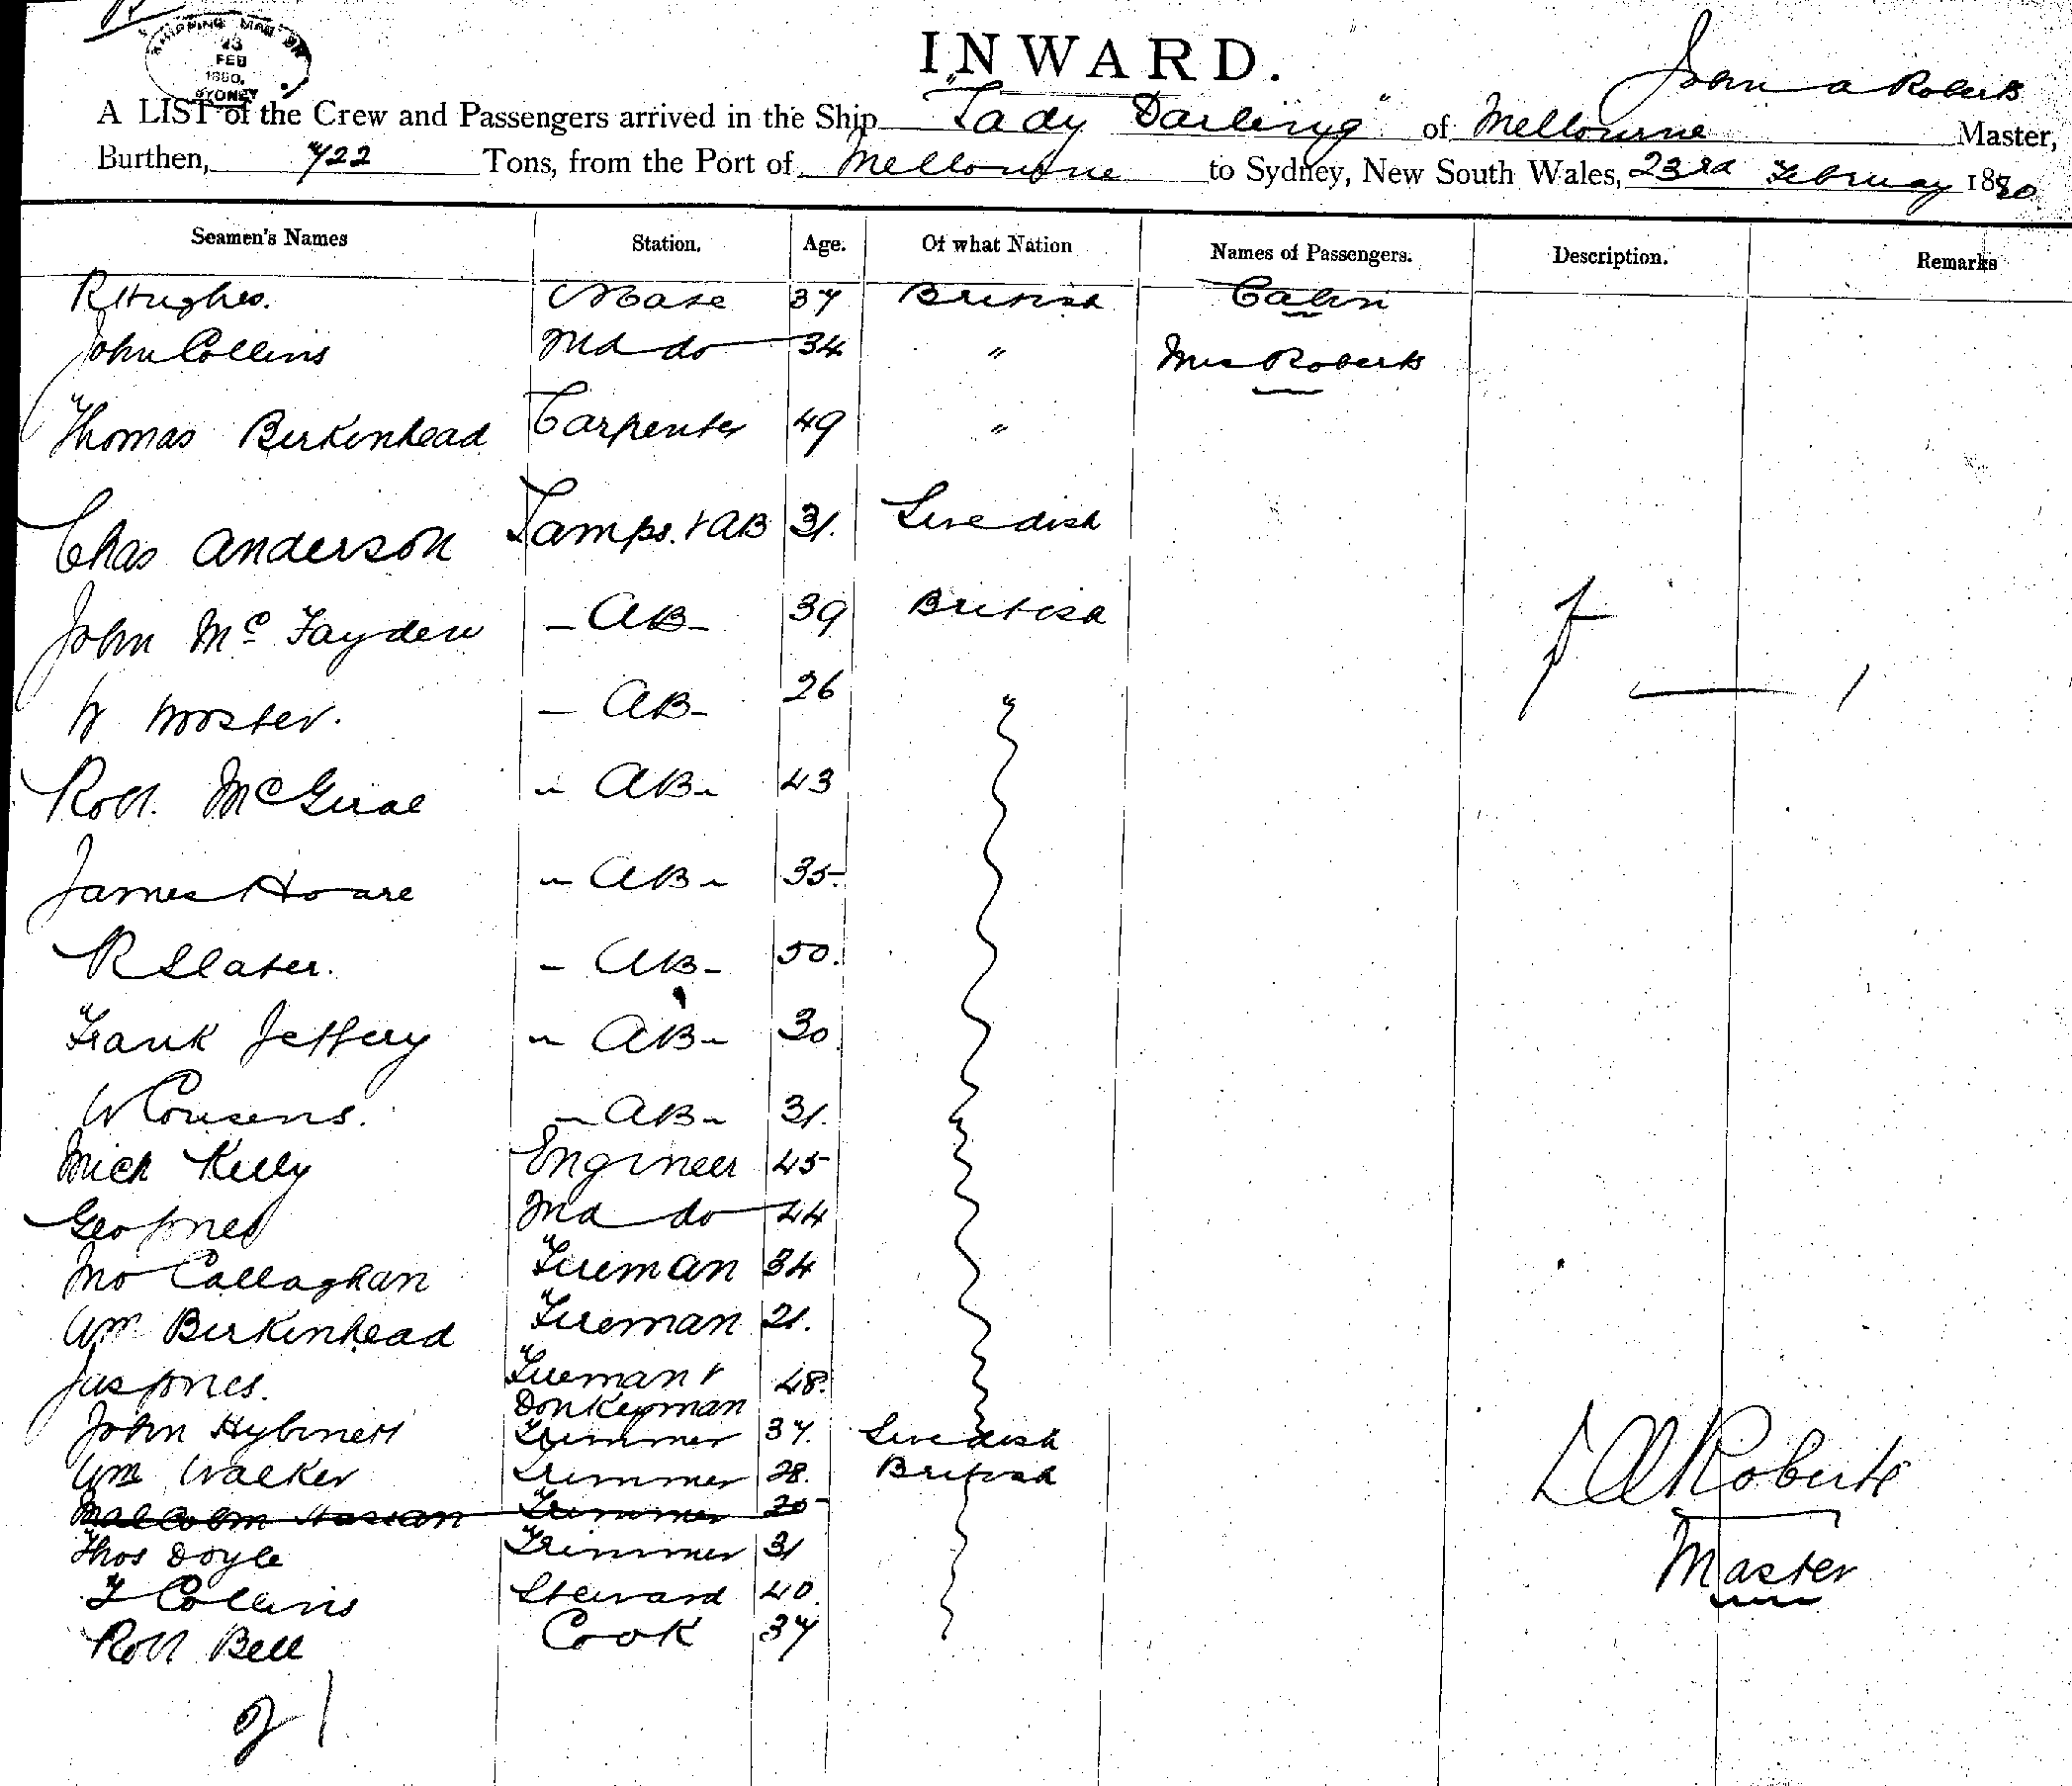 SHIPPING MASTER
23
FEB
1880.
SYDNEY
INWARD.
John A Roberts
A LIST of the Crew and Passengers arrived in the Ship "Lady Darling" of Melbourne Master,
Burthen, 722 Tons, from the Port of Melbourne to Sydney, New South Wales, 23rd February 1880
Seamen's Names Station. Age. Of what Nation Names of Passengers. Description. Remarks
R Hughes. Mate 37 British Cabin
John Collins 2nd do 34 " Mrs Roberts
Thomas Birkinhead Carpenter 49 "
Chas Anderson Lamps. + AB 31. Swedish
John Mc Fayden - AB - 39 British
W Wooster. - AB - 26 "
Robt. McGirae - AB - 43
James Hoare - AB - 35.
R Slater. - AB - 50.
Frank Jeffery - AB - 30
W Cousens. - AB - 31.
Mich Kelly Engineer 45
Geo Jones 2nd do 44
Jno Callaghan Fireman 34
Wm Birkinhead Fireman 21.
Jas Jones. Fireman + 48.
Donkeyman
John Hybinett Trimmer 37. Swedish
Wm Walker Trimmer 28. British
Malcolm Trimmer 20
Thos Doyle Trimmer 31
Collins Steward 40.
Robt Bell Cook 37
21
A Roberts
Master